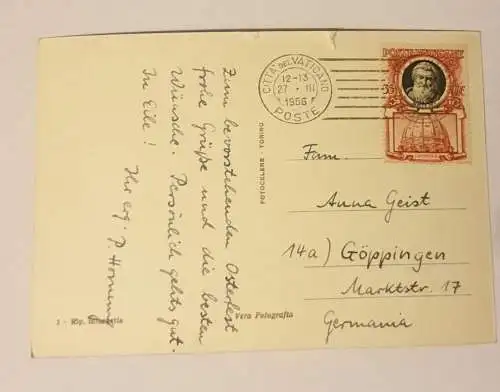 Zum bevorstehenden Osterfest
frohe Grüße und die besten
Wünsche. Persönlich gehts gut.
In Eile!
Ihr erg. P.
FOTOCELERE - TORINO
CITTA' DEL VATICANO
12-13
27 · III
1956
POSTE
35
Anna Geist
14a) Göppingen
Marktstr. 17
Germania
Vera Fotografia